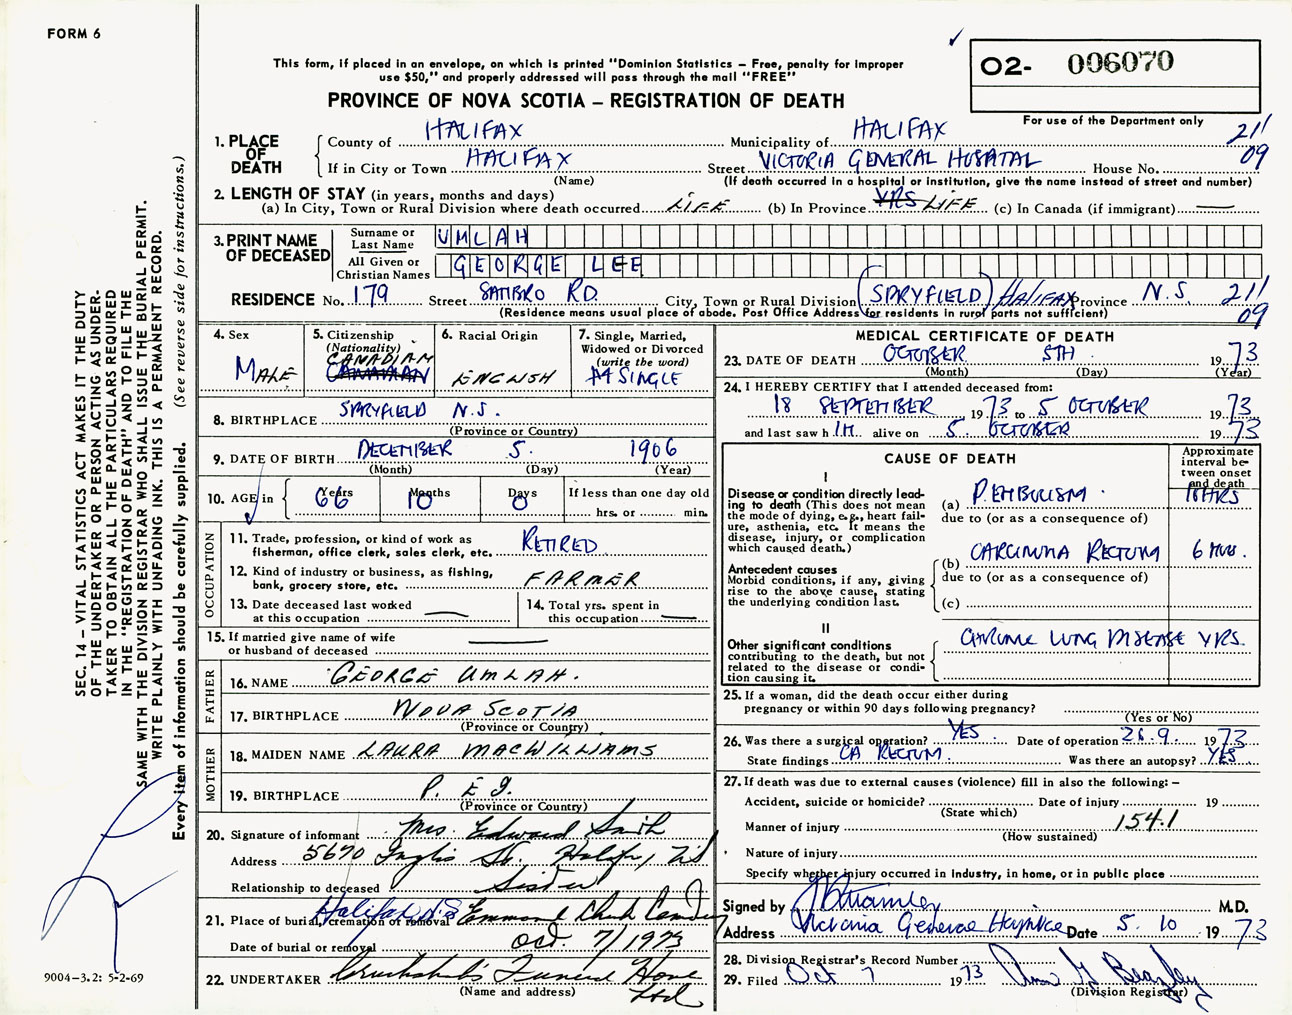 FORM 6
This form, if placed in an envelope, on which is printed "Dominion Statistics – Free, penalty for improper
use $50," and properly addressed will pass through the mail "FREE"
PROVINCE OF NOVA SCOTIA – REGISTRATION OF DEATH
O2- 006070
For use of the Department only
1. PLACE OF DEATH
County of HALIFAX Municipality of HALIFAX 211
If in City or Town HALIFAX Street VICTORIA GENERAL HOSPITAL House No. 09
(Name) (If death occurred in a hospital or institution, give the name instead of street and number)
2. LENGTH OF STAY (in years, months and days)
(a) In City, Town or Rural Division where death occurred LIFE (b) In Province YRS LIFE (c) In Canada (if immigrant) —
3. PRINT NAME OF DECEASED
Surname or Last Name UMLAH
All Given or Christian Names GEORGE LEE
RESIDENCE No. 179 Street SAMBRO RD. City, Town or Rural Division (SPRYFIELD) HALIFAX Province N.S. 211
(Residence means usual place of abode. Post Office Address for residents in rural parts not sufficient) 09
4. Sex
MALE
5. Citizenship
(Nationality)
CANADIAN
6. Racial Origin
ENGLISH
7. Single, Married,
Widowed or Divorced
(write the word)
SINGLE
8. BIRTHPLACE SPRYFIELD N.S.
(Province or Country)
9. DATE OF BIRTH DECEMBER 5 1906
(Month) (Day) (Year)
10. AGE in
Years 66 Months 10 Days 0
If less than one day old
hrs. or min.
OCCUPATION
11. Trade, profession, or kind of work as
fisherman, office clerk, sales clerk, etc. RETIRED
12. Kind of industry or business, as fishing,
bank, grocery store, etc. FARMER
13. Date deceased last worked
at this occupation —
14. Total yrs. spent in
this occupation —
15. If married give name of wife
or husband of deceased —
FATHER
16. NAME GEORGE UMLAH.
17. BIRTHPLACE NOVA SCOTIA
(Province or Country)
MOTHER
18. MAIDEN NAME LAURA MACWILLIAMS
19. BIRTHPLACE P. E I.
(Province or Country)
20. Signature of informant Mrs. Edward Smith
Address 5670 Inglis St. Halifax, NS
Relationship to deceased Sister
21. Place of burial, cremation or removal Halifax N.S. Emmanuel Church Cemetery
Date of burial or removal Oct. 7/1973
22. UNDERTAKER Cruikshank's Funeral Home
(Name and address) Ltd
MEDICAL CERTIFICATE OF DEATH
23. DATE OF DEATH OCTOBER 5TH 1973
(Month) (Day) (Year)
24. I HEREBY CERTIFY that I attended deceased from:
18 SEPTEMBER 1973 to 5 OCTOBER 1973
and last saw h IM alive on 5 OCTOBER 1973
CAUSE OF DEATH
Approximate
interval be-
tween onset
and death
I
Disease or condition directly lead-
ing to death (This does not mean
the mode of dying, e.g., heart fail-
ure, asthenia, etc. It means the
disease, injury, or complication
which caused death.)
(a) P. EMBOLISM 18 HRS
due to (or as a consequence of)
(b) CARCINOMA RECTUM 6 MOS.
due to (or as a consequence of)
(c)
Antecedent causes
Morbid conditions, if any, giving
rise to the above cause, stating
the underlying condition last.
II
Other significant conditions
contributing to the death, but not
related to the disease or condi-
tion causing it.
CHRONIC LUNG DISEASE YRS.
25. If a woman, did the death occur either during
pregnancy or within 90 days following pregnancy?
(Yes or No)
26. Was there a surgical operation? YES Date of operation 26.9. 1973
State findings CA RECTUM. Was there an autopsy? YES
27. If death was due to external causes (violence) fill in also the following: –
Accident, suicide or homicide? Date of injury 19
(State which)
Manner of injury 154.1
(How sustained)
Nature of injury
Specify whether injury occurred in industry, in home, or in public place
Signed by M.D.
Address Victoria General Hospital Date 5. 10 1973
28. Division Registrar's Record Number
29. Filed Oct 7 1973
(Division Registrar)
SEC. 14 – VITAL STATISTICS ACT MAKES IT THE DUTY
OF THE UNDERTAKER OR PERSON ACTING AS UNDER-
TAKER TO OBTAIN ALL THE PARTICULARS REQUIRED
IN THE "REGISTRATION OF DEATH" AND TO FILE THE
SAME WITH THE DIVISION REGISTRAR WHO SHALL ISSUE THE BURIAL PERMIT.
WRITE PLAINLY WITH UNFADING INK. THIS IS A PERMANENT RECORD.
Every item of information should be carefully supplied. (See reverse side for instructions.)
9004–3.2: 5-2-69